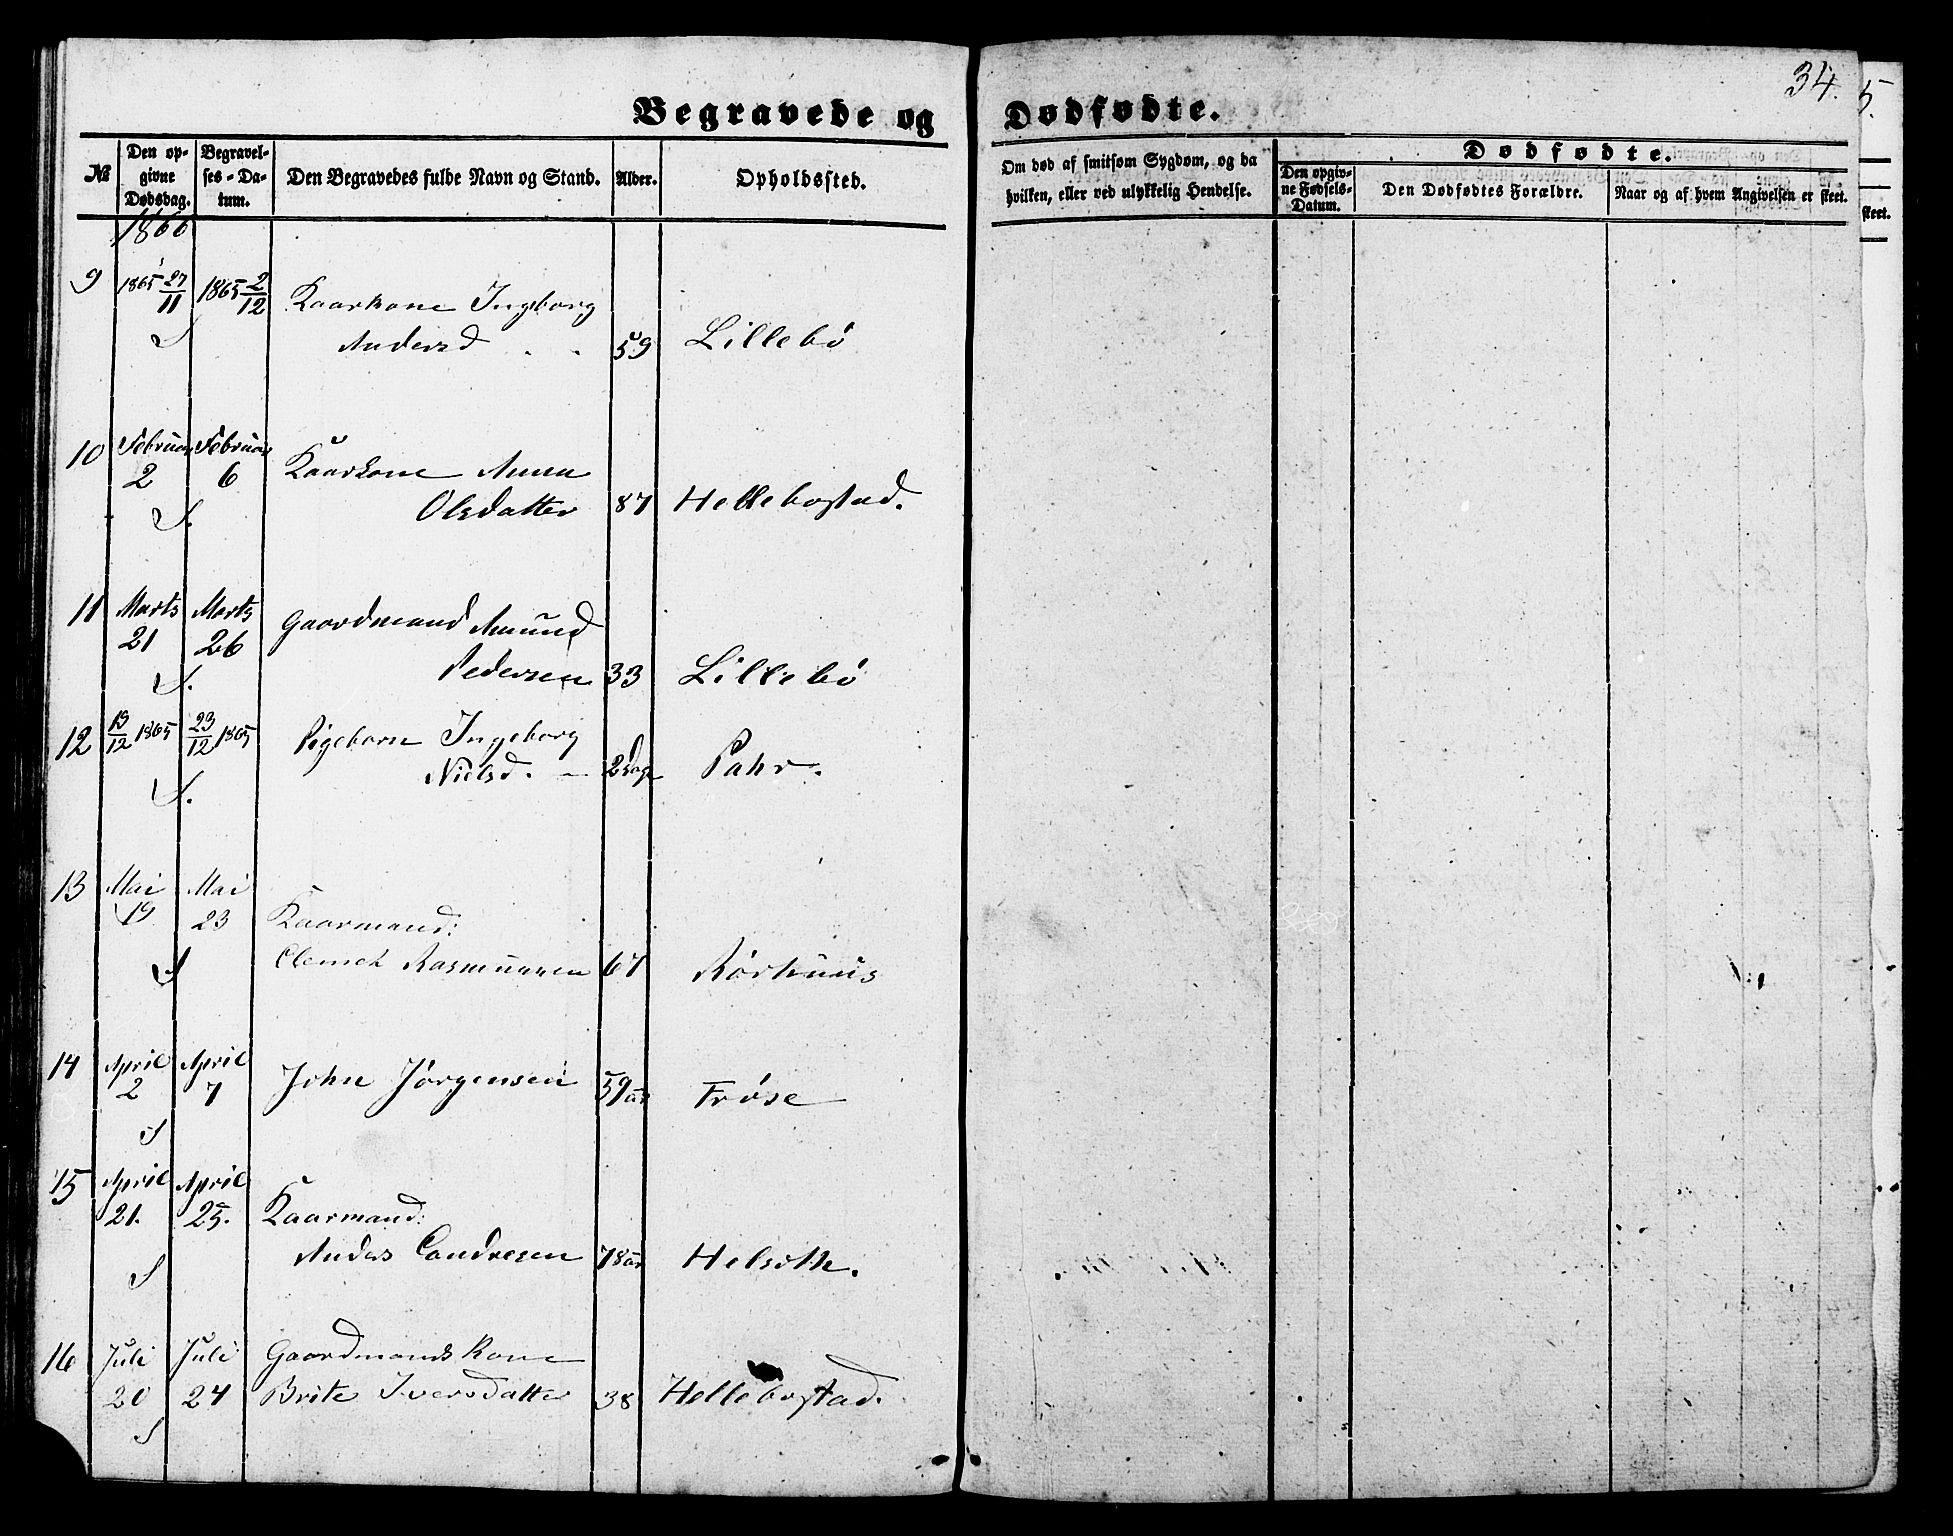 34.
5.
Begravede og Dødfødte.
№
Den opgivne Dødsdag.
Begravelses-Datum.
Den Begravedes fulde Navn og Stand.
Alder.
Opholdssted.
Om død af smitsom Sygdom, og da hvilken, eller ved ulykkelig Hendelse.
Dødfødte.
Den opgivne Fødsels-Datum.
Den Dødfødtes Forældre.
Naar og af hvem Angivelsen er skeet.
skeet.
1866
9 1865 27/11 1865 2/12 Kaarkone Ingborg
Andersd 59 Lillebö
10 Februar 2 Februar 6 Kaarkone Anna
Olsdatter 87 Hellebostad.
11 Marts 21 Marts 26 Gaardmand Amund
Pedersen 33 Lillebö
12 19/12 1865 23/12 1865 Pigebarn Ingeborg
Nielsd. 2 Dage
13 Mai 19 Mai 23 Kaarmand:
Rasmussen 67
14 April 2 April 7 John Jörgensen 59 aar Fröse
15 April 21. April 25. Kaarmand:
Anders 78 aar
16 Juli 20 Juli 24 Gaardmands Kone
Brite Iversdatter 38 Hellebostad.